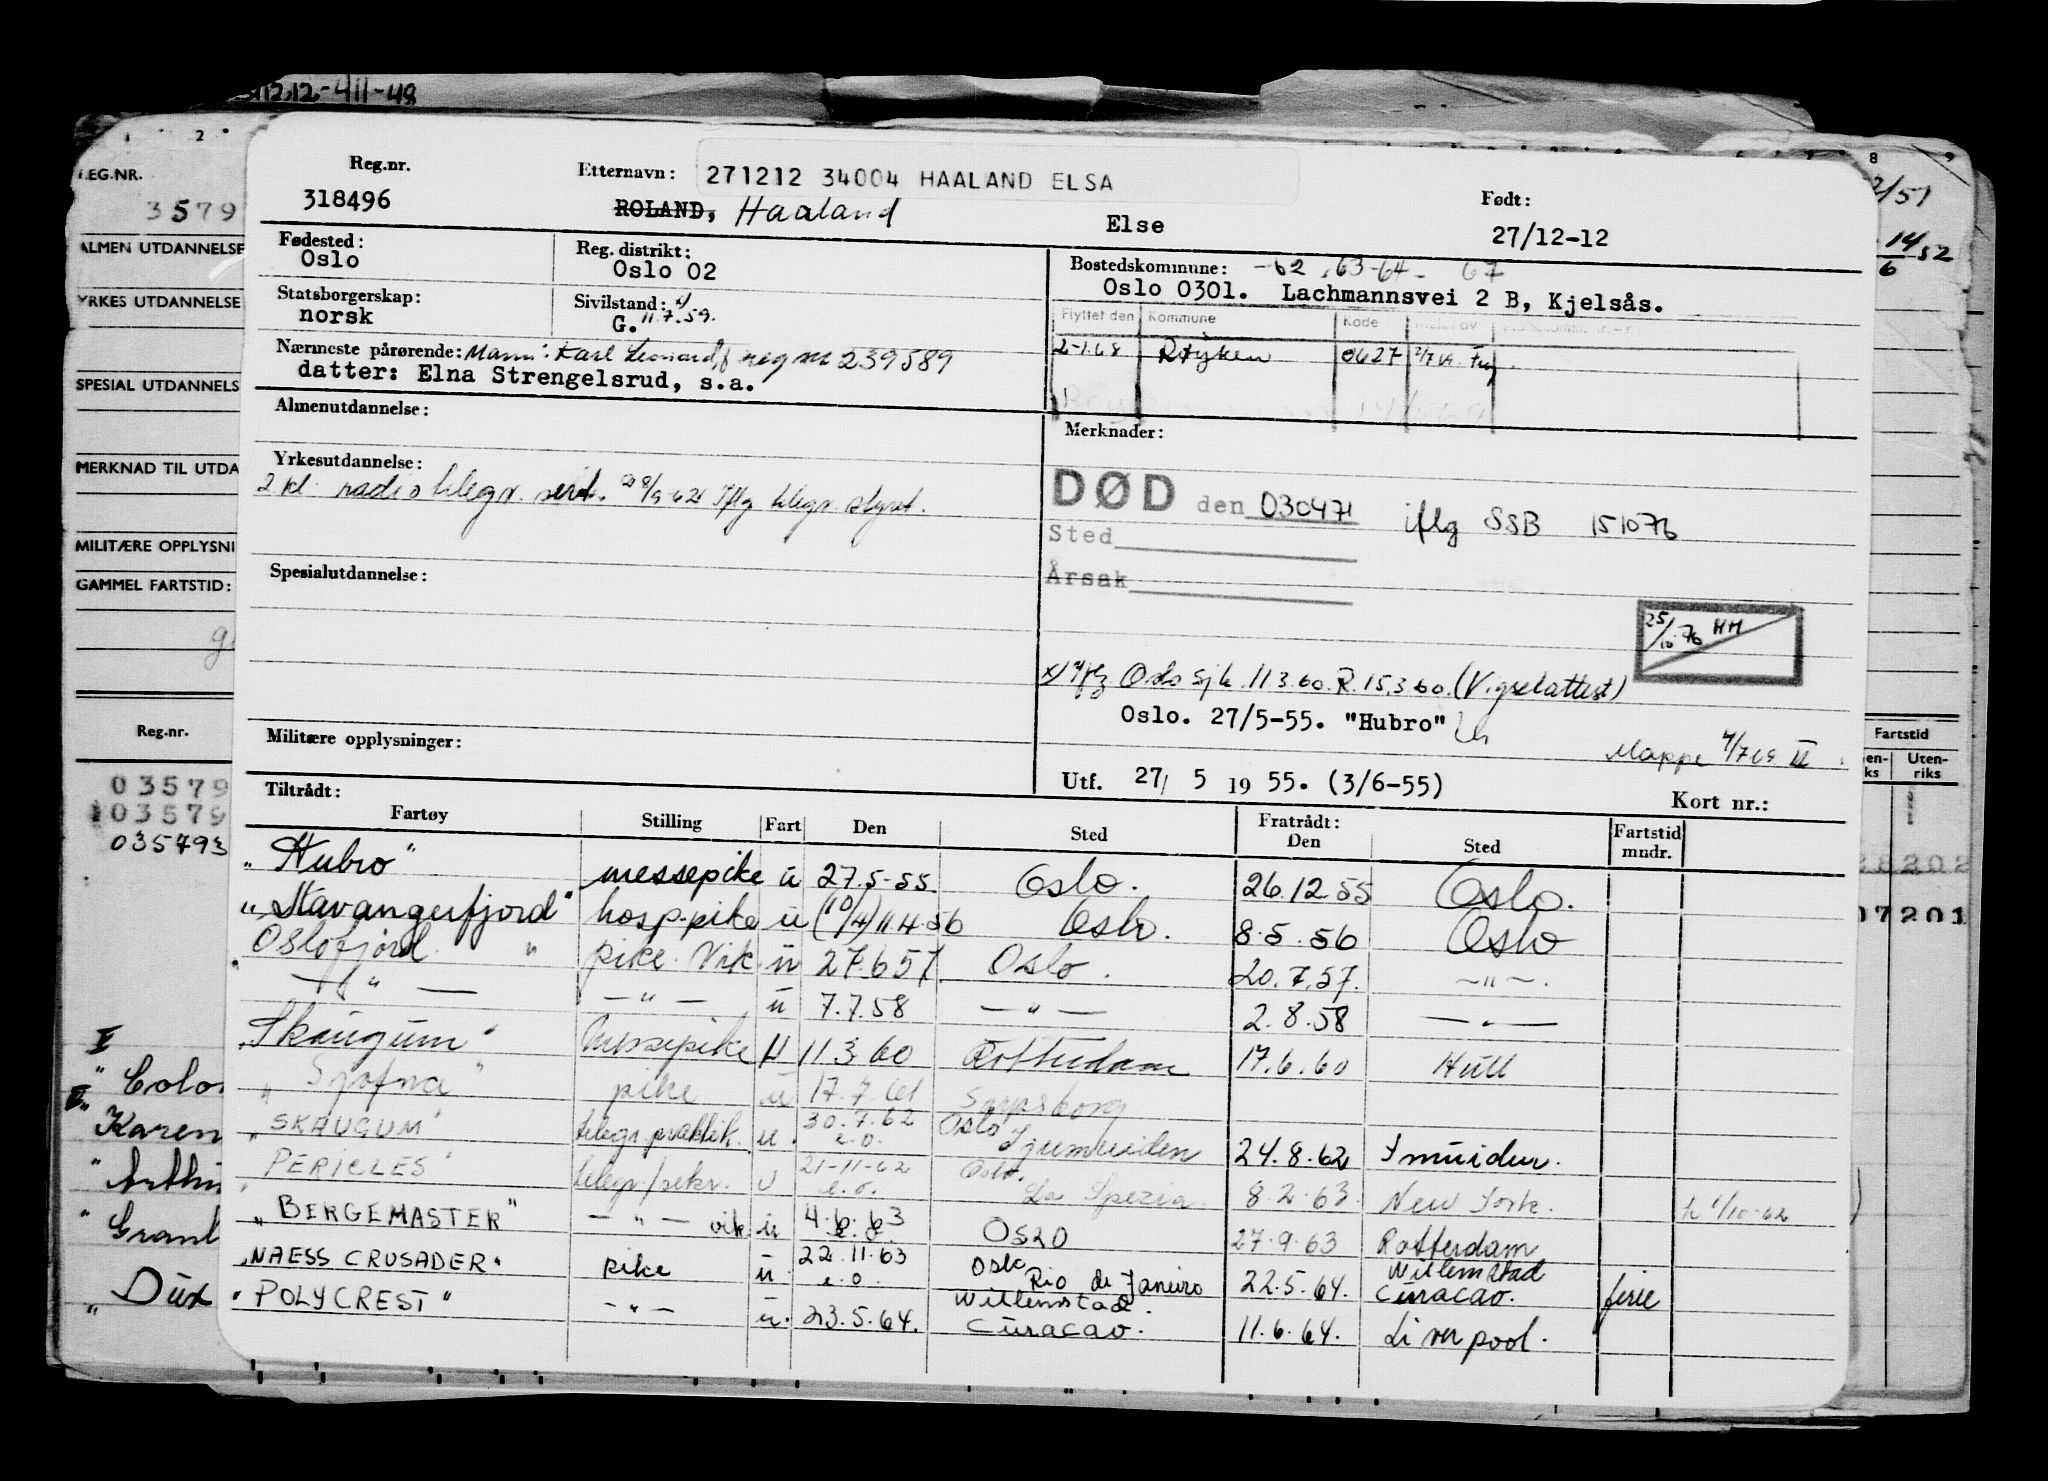 12.12-411-48
Reg.nr. Etternavn: 271212 34004 HAALAND ELSA Født:
318496 ROLAND, Haaland Else 27/12-12
Fødested: Reg. distrikt: Bostedskommune: -62 . 63-64- 67
Oslo Oslo 02 Oslo 0301. Lachmannsvei 2 B, Kjelsås.
Statsborgerskap: Sivilstand: x) Flyttet den Kommune Kode
norsk G. 11.7.59. 2-1.68 Røyken 0627
Nærmeste pårørende: Mann: Karl Leonard, reg nr 239589
datter: Elna Strengelsrud, s.a.
Almenutdannelse: Merknader:
Yrkesutdannelse:
2 kl. radiotelegr. sert. 8/9-62 Iflg telegr. styret.
DØD den 030471 iflg SSB 151076
Sted
Årsak
Spesialutdannelse:
25/10-76 HH
x) Iflg. Oslo Sjk. 11.3.60. R. 15.3.60. (Vigselattest)
Oslo. 27/5-55. "Hubro"
Militære opplysninger: Mappe 4/769
Utf. 27/ 5 1955. (3/6-55) Kort nr.:
Tiltrådt: Fratrådt:
Fartøy Stilling Fart Den Sted Den Sted Fartstid mndr.
"Hubro" messepike u 27.5-55. Oslo. 26.12.55 Oslo.
"Stavangerfjord" hosp.pike u (10/4) 11.4.56 Oslo. 8.5.56 Oslo
Oslofjord " pike. Vik. u 27.6.57 Oslo. 20.7.57. — " —.
— " — — " — u 7.7.58 — " — 2.8.58 — " —
"Skaugum" Messepike u 11.3.60 Rotterdam 17.6.60 Hull
"Sjofna" pike u 17.7.61 Sarpsborg
"SKAUGUM" telegr.praktik. u. 30.7.62 e.o. Oslo Ijumuiden 24.8.62 Imuiden.
"PERICLES" telegr/pike. u 21-11-62 e.o. Oslo. La Spezia. 8.2.63. New York. 1/10-62
"BERGEMASTER" — " — vik. u 4.6.63 e.o. OSLO 27.9.63 Rotterdam
"NAESS CRUSADER" pike u 22.11.63 e.o. Oslo Rio de Janeiro 22.5.64. Willemstad Curacao. ferie
"POLYCREST" — " — u. 23.5.64. Willemstad Curacao. 11.6.64. Liverpool.
1 2
REG.NR.
3579
ALMEN UTDANNELSE
YRKES UTDANNELSE
SPESIAL UTDANNELS
MERKNAD TIL UTDA
MILITÆRE OPPLYSNI
GAMMEL FARTSTID:
Reg.nr.
03579
03579
035793
" Colo
Karen
" Arthu
" Grant
" Dux
8 9
2/51
14/6 52
Fartstid
en-ks Uten-riks
28202
07201